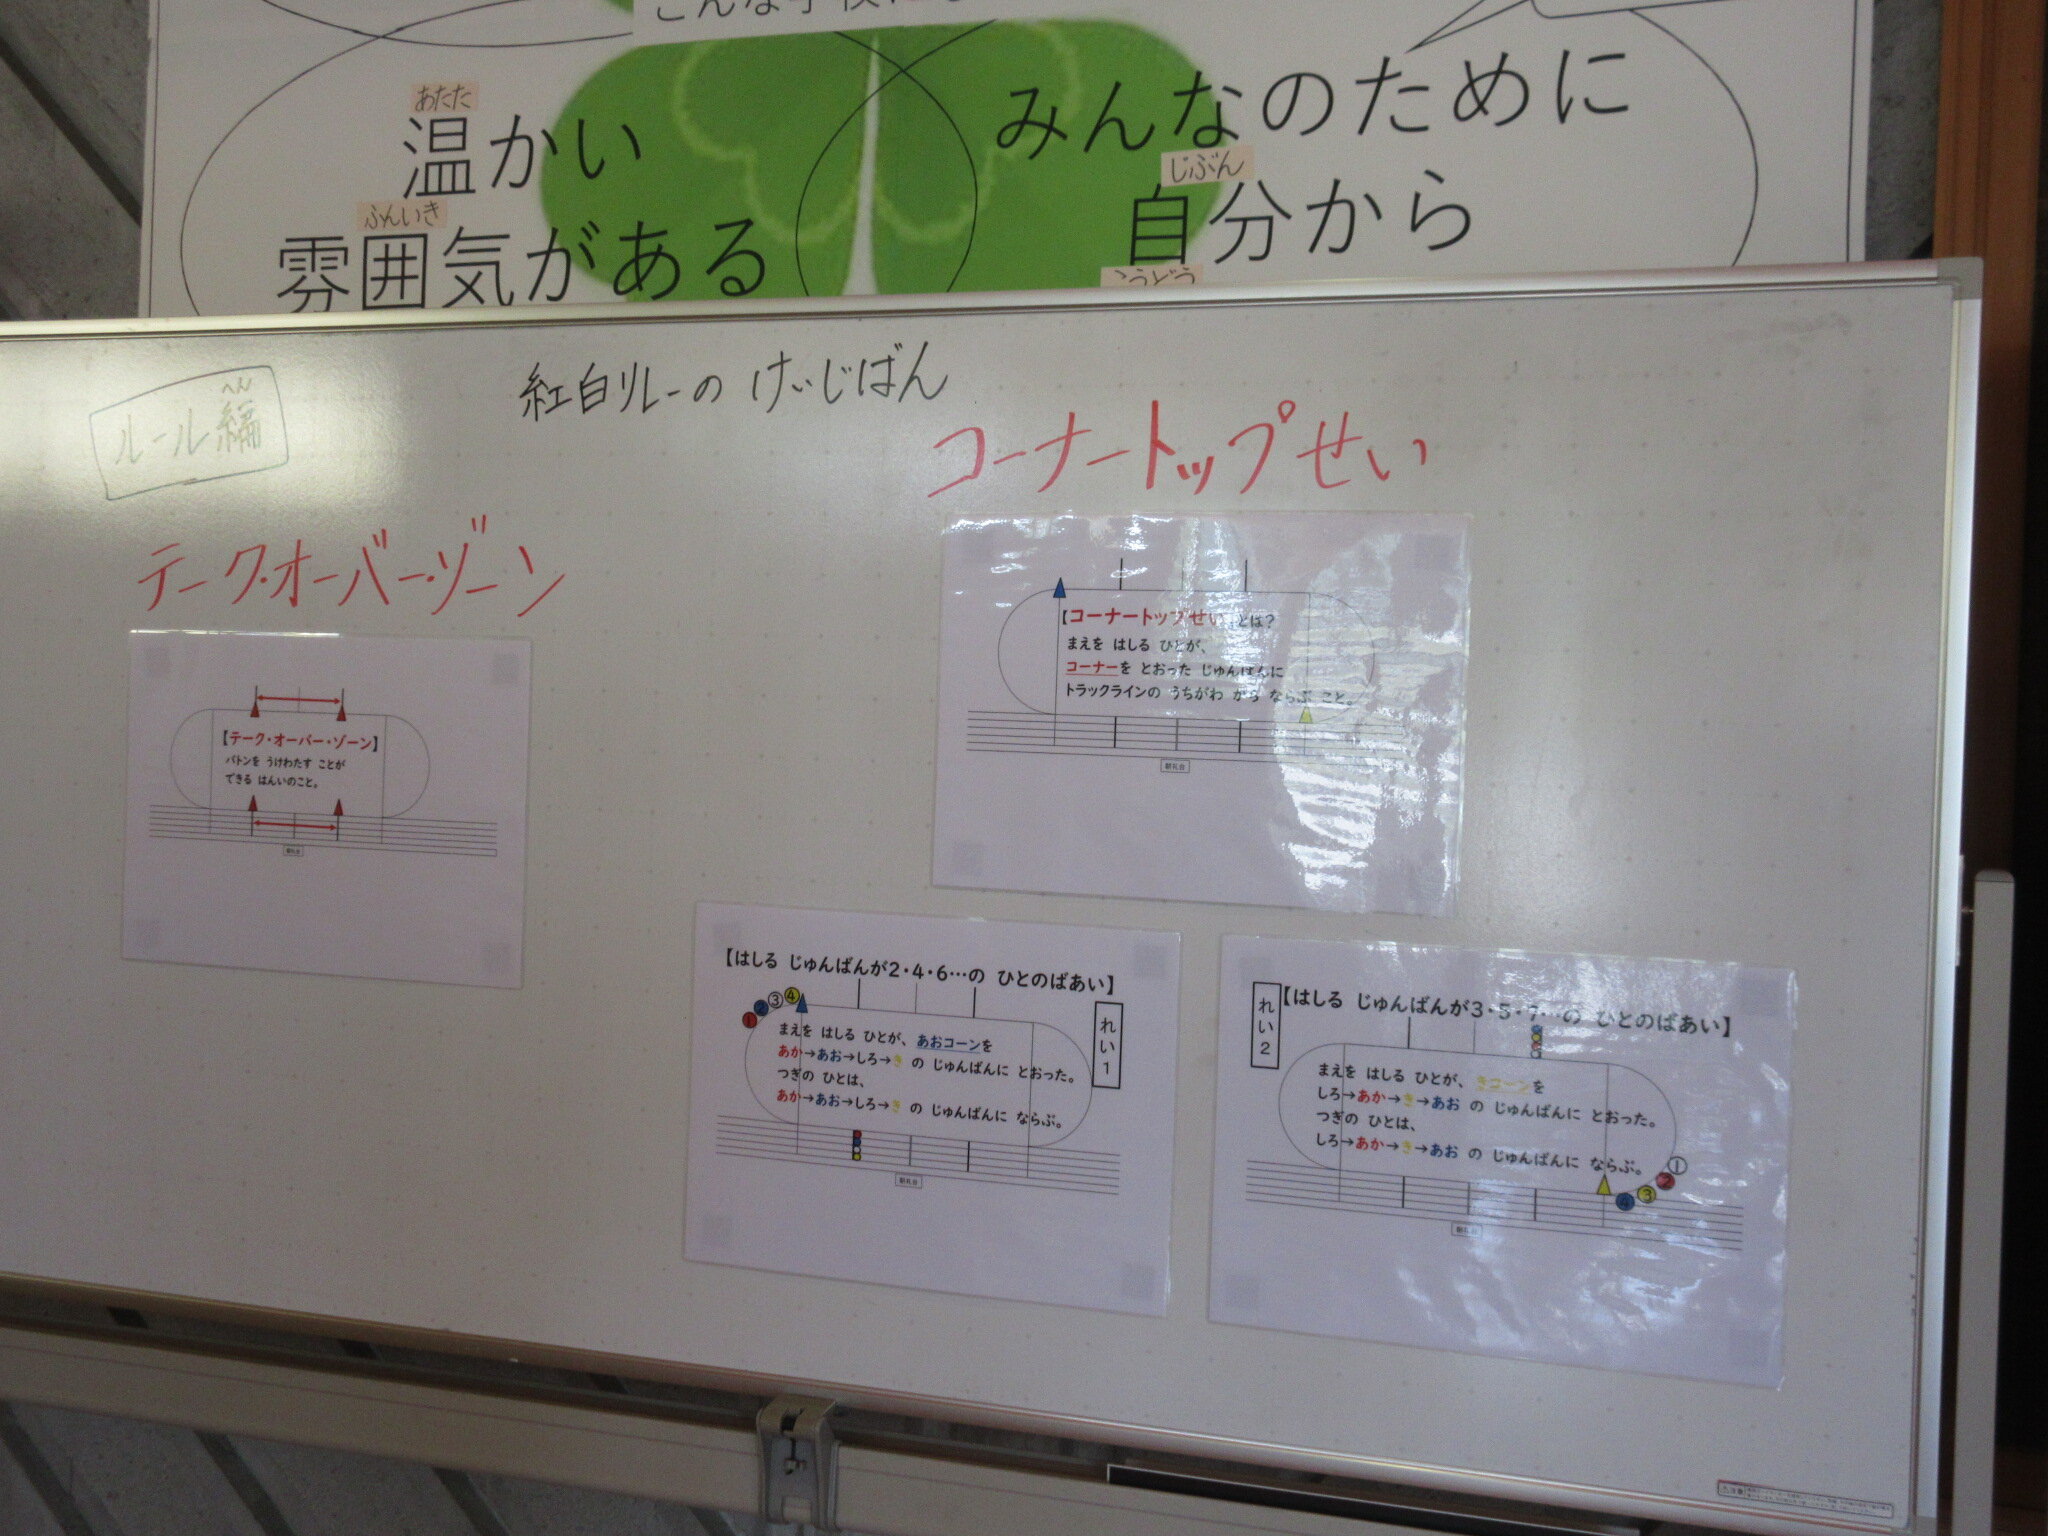 温かい
あたた
雰囲気がある
ふんいき
みんなのために
自分から
じぶん
こうどう
紅白リレーの けいじばん
ルール編
へん
テーク・オーバー・ゾーン
【テーク・オーバー・ゾーン】
バトンを うけわたす ことが
できる はんいのこと。
朝礼台
コーナートップせい
【コーナートップせい】とは？
まえを はしる ひとが、
コーナーを とおった じゅんばんに
トラックラインの うちがわ から ならぶ こと。
朝礼台
【はしる じゅんばんが2・4・6…の ひとのばあい】
れい1
① ② ③ ④
まえを はしる ひとが、あおコーンを
あか→あお→しろ→き の じゅんばんに とおった。
つぎの ひとは、
あか→あお→しろ→き の じゅんばんに ならぶ。
朝礼台
れい2
【はしる じゅんばんが3・5・7…の ひとのばあい】
まえを はしる ひとが、きコーンを
しろ→あか→き→あお の じゅんばんに とおった。
つぎの ひとは、
しろ→あか→き→あお の じゅんばんに ならぶ。
① ② ③ ④
朝礼台